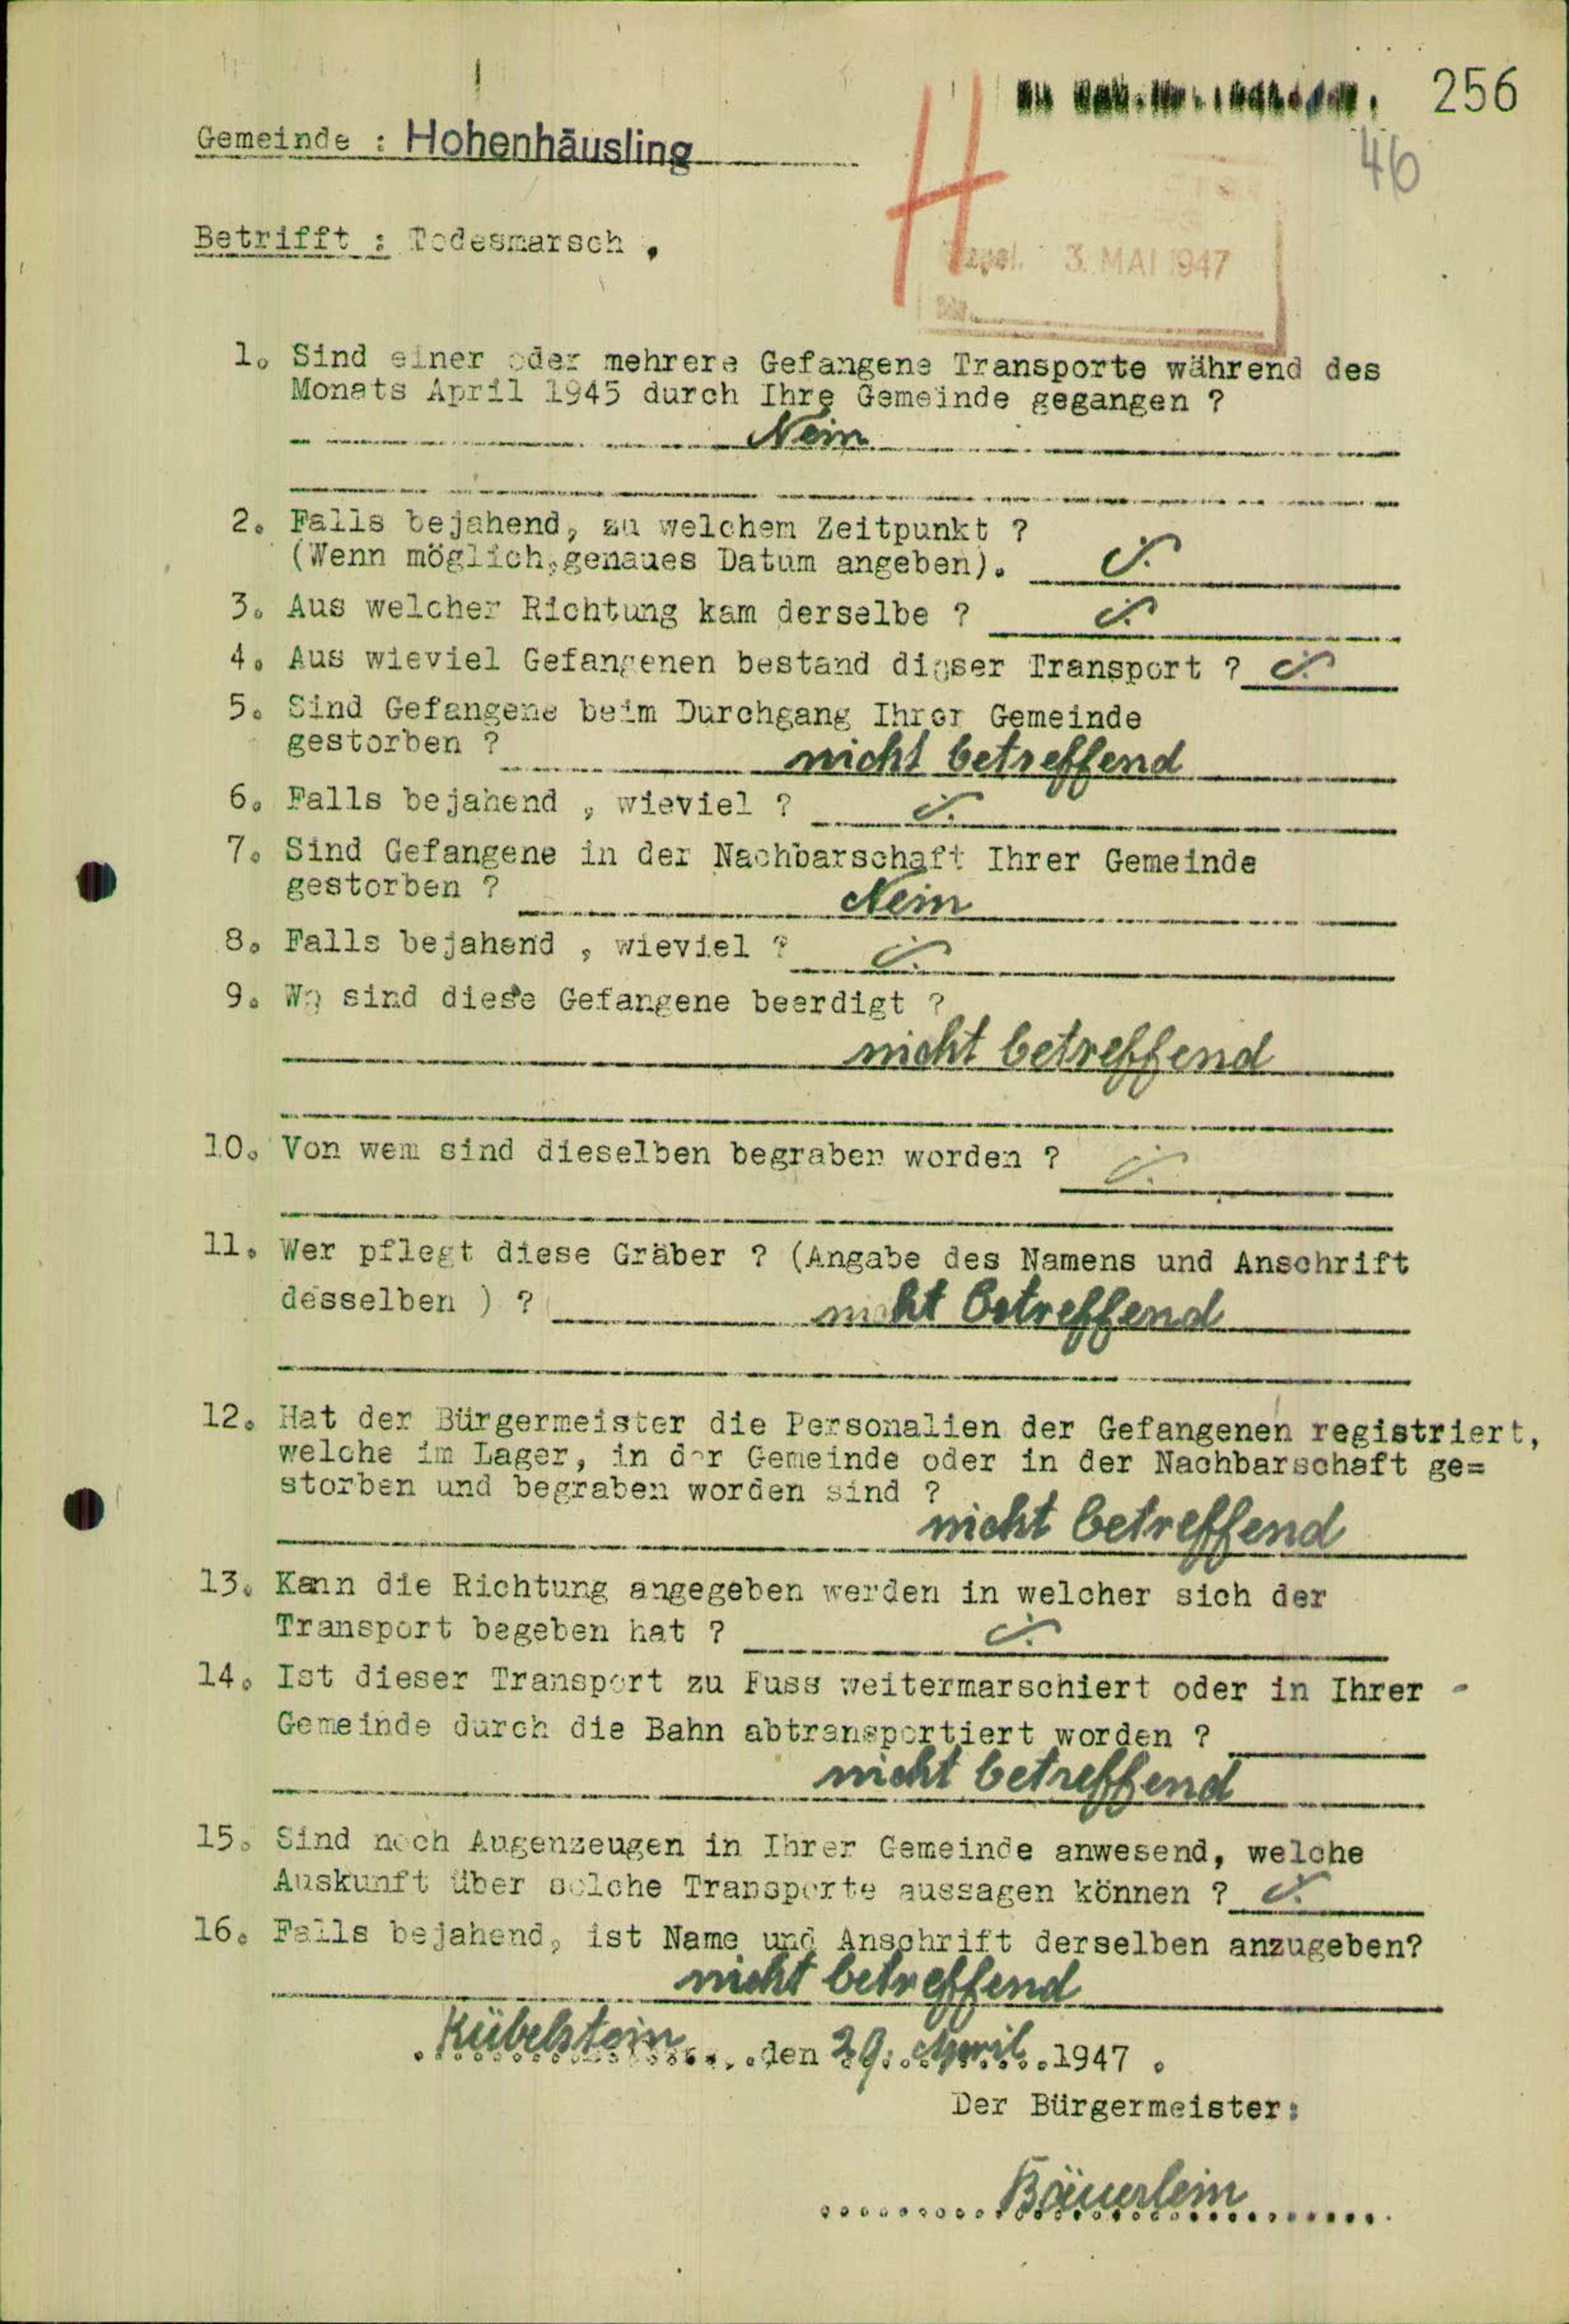 256
Gemeinde : Hohenhäusling
46
H
Betrifft : Todesmarsch .
3. MAI 1947
1. Sind einer oder mehrere Gefangene Transporte während des
Monats April 1945 durch Ihre Gemeinde gegangen ?
Nein
2. Falls bejahend, zu welchem Zeitpunkt ?
(Wenn möglich,genaues Datum angeben).
3. Aus welcher Richtung kam derselbe ?
4. Aus wieviel Gefangenen bestand dieser Transport ?
5. Sind Gefangene beim Durchgang Ihrer Gemeinde
gestorben ? nicht betreffend
6. Falls bejahend , wieviel ?
7. Sind Gefangene in der Nachbarschaft Ihrer Gemeinde
gestorben ? Nein
8. Falls bejahend , wieviel ?
9. Wo sind diese Gefangene beerdigt ?
nicht betreffend
10. Von wem sind dieselben begraben worden ?
11. Wer pflegt diese Gräber ? (Angabe des Namens und Anschrift
desselben ) ? nicht betreffend
12. Hat der Bürgermeister die Personalien der Gefangenen registriert,
welche im Lager, in der Gemeinde oder in der Nachbarschaft ge=
storben und begraben worden sind ?
nicht betreffend
13. Kann die Richtung angegeben werden in welcher sich der
Transport begeben hat ?
14. Ist dieser Transport zu Fuss weitermarschiert oder in Ihrer -
Gemeinde durch die Bahn abtransportiert worden ?
nicht betreffend
15. Sind noch Augenzeugen in Ihrer Gemeinde anwesend, welche
Auskunft über solche Transporte aussagen können ?
16. Falls bejahend, ist Name und Anschrift derselben anzugeben?
nicht betreffend
Kübelstein den 29. April 1947 .
Der Bürgermeister:
Bäuerlein